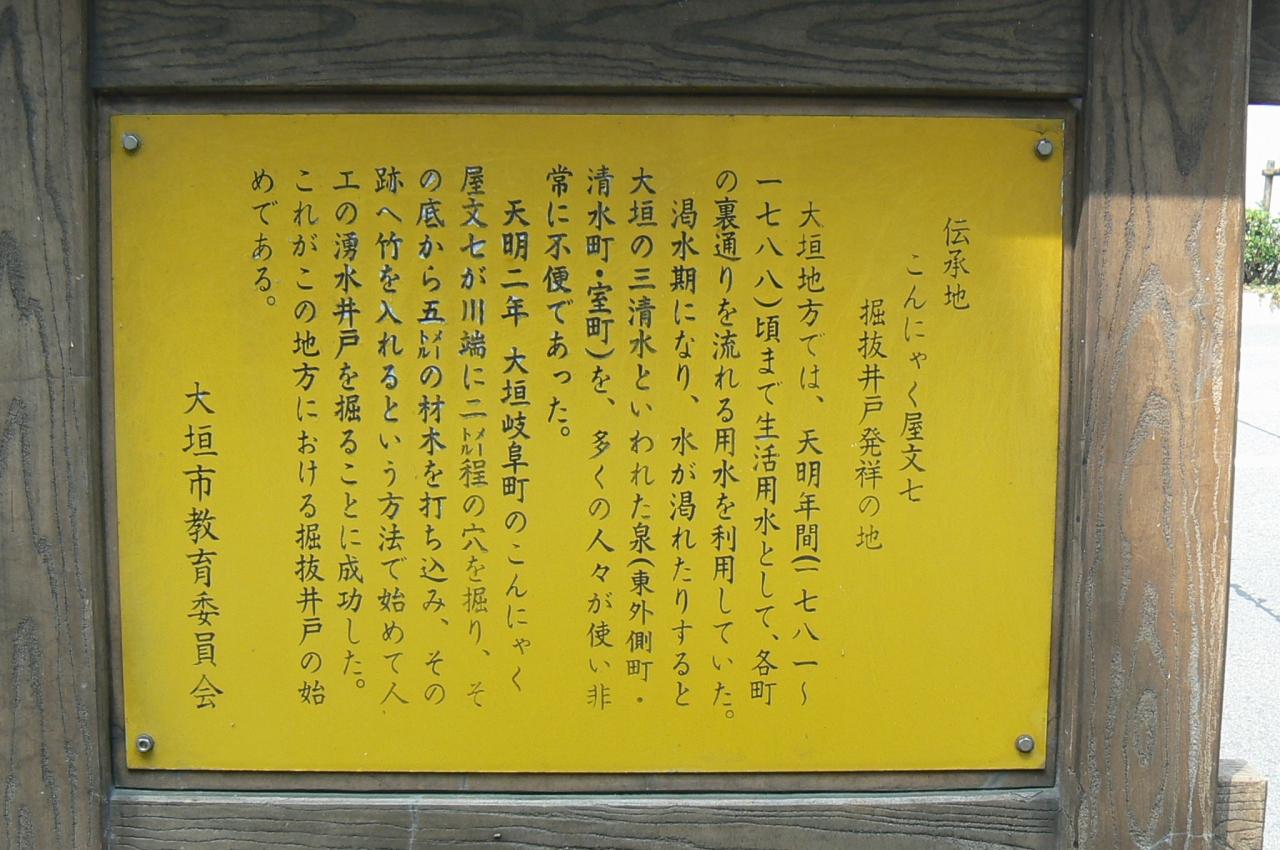 伝承地
こんにゃく屋文七
掘抜井戸発祥の地
大垣地方では、天明年間(一七八一〜
一七八八)頃まで生活用水として、各町
の裏通りを流れる用水を利用していた。
渇水期になり、水が渇れたりすると
大垣の三清水といわれた泉(東外側町・
清水町・室町)を、多くの人々が使い非
常に不便であった。
天明二年 大垣岐阜町のこんにゃく
屋文七が川端に二メートル程の穴を掘り、そ
の底から五メートルの材木を打ち込み、その
跡へ竹を入れるという方法で始めて人
工の湧水井戸を掘ることに成功した。
これがこの地方における掘抜井戸の始
めである。
大垣市教育委員会